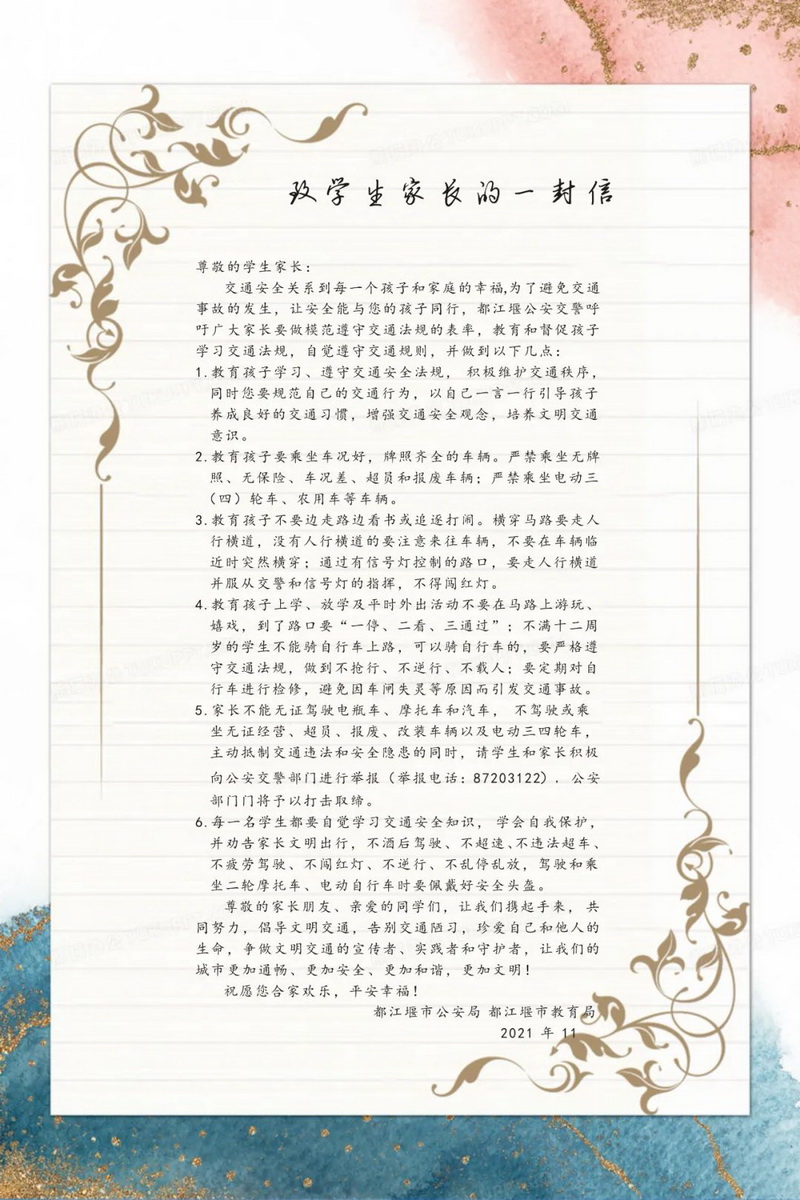 致学生家长的一封信
尊敬的学生家长：
交通安全关系到每一个孩子和家庭的幸福,为了避免交通
事故的发生，让安全能与您的孩子同行，都江堰公安交警呼
吁广大家长要做模范遵守交通法规的表率，教育和督促孩子
学习交通法规，自觉遵守交通规则，并做到以下几点：
1.教育孩子学习、遵守交通安全法规， 积极维护交通秩序，
同时您要规范自己的交通行为，以自己一言一行引导孩子
养成良好的交通习惯，增强交通安全观念，培养文明交通
意识。
2.教育孩子要乘坐车况好，牌照齐全的车辆。严禁乘坐无牌
照、无保险、车况差、超员和报废车辆；严禁乘坐电动三
（四）轮车、农用车等车辆。
3.教育孩子不要边走路边看书或追逐打闹。横穿马路要走人
行横道，没有人行横道的要注意来往车辆，不要在车辆临
近时突然横穿；通过有信号灯控制的路口，要走人行横道
并服从交警和信号灯的指挥，不得闯红灯。
4.教育孩子上学、放学及平时外出活动不要在马路上游玩、
嬉戏，到了路口要“一停、二看、三通过”；不满十二周
岁的学生不能骑自行车上路，可以骑自行车的，要严格遵
守交通法规，做到不抢行、不逆行、不载人；要定期对自
行车进行检修，避免因车闸失灵等原因而引发交通事故。
5.家长不能无证驾驶电瓶车、摩托车和汽车， 不驾驶或乘
坐无证经营、超员、报废、改装车辆以及电动三四轮车，
主动抵制交通违法和安全隐患的同时，请学生和家长积极
向公安交警部门进行举报（举报电话：87203122）．公安
部门门将予以打击取缔。
6.每一名学生都要自觉学习交通安全知识， 学会自我保护，
并劝告家长文明出行，不酒后驾驶、不超速、不违法超车、
不疲劳驾驶、不闯红灯、不逆行、不乱停乱放，驾驶和乘
坐二轮摩托车、电动自行车时要佩戴好安全头盔。
尊敬的家长朋友、亲爱的同学们，让我们携起手来， 共
同努力，倡导文明交通，告别交通陋习，珍爱自己和他人的
生命，争做文明交通的宣传者、实践者和守护者，让我们的
城市更加通畅、更加安全、更加和谐，更加文明！
祝愿您合家欢乐，平安幸福！
都江堰市公安局 都江堰市教育局
2021 年 11